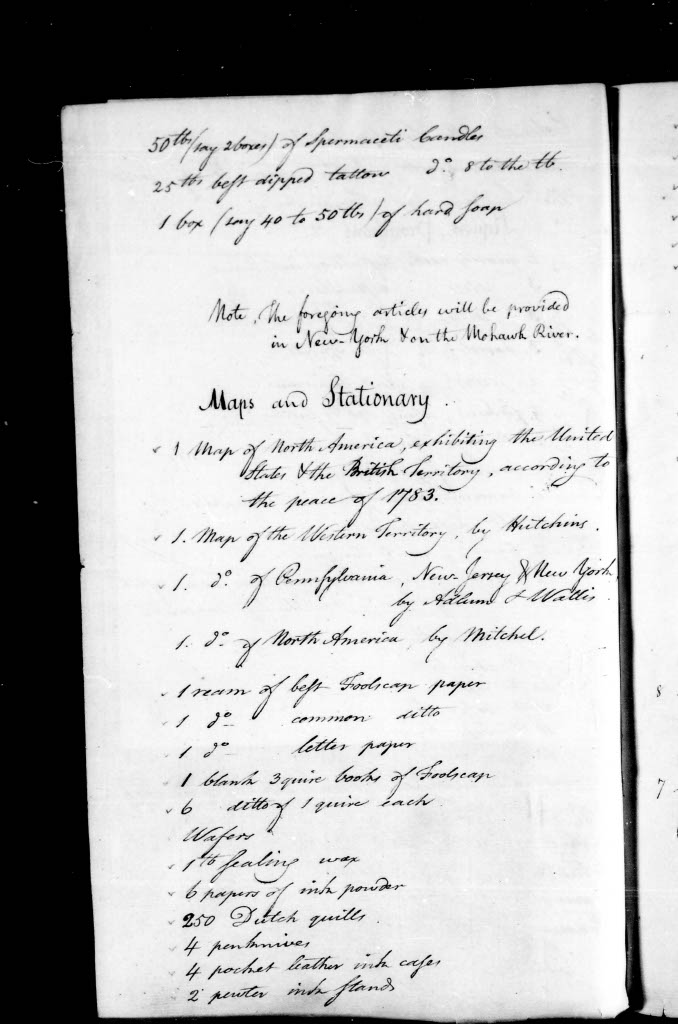 50 lbs (say 2 boxes) of Spermaceti Candles
25 lbs best dipped tallow do. 8 to the lb.
1 box (say 40 to 50 lbs) of hard Soap
Note, The foregoing articles will be provided
in New-York & on the Mohawk River.
Maps and Stationary.
1 Map of North America, exhibiting the United
States & the British Territory, according to
the peace of 1783.
1. Map of the Western Territory, by Hutchins.
1. do. of Pennsylvania, New-Jersey & New York,
by Adlum & Wallis.
1. do. of North America, by Mitchel.
1 ream of best Foolscap paper
1 do common ditto
1 do letter paper
1 blank 3 quire books of Foolscap
6 ditto of 1 quire each
Wafers
1 lb Sealing wax
6 papers of ink powder
250 Dutch quills
4 penknives
4 pocket leather ink cases
2 pewter ink Stands
8
7